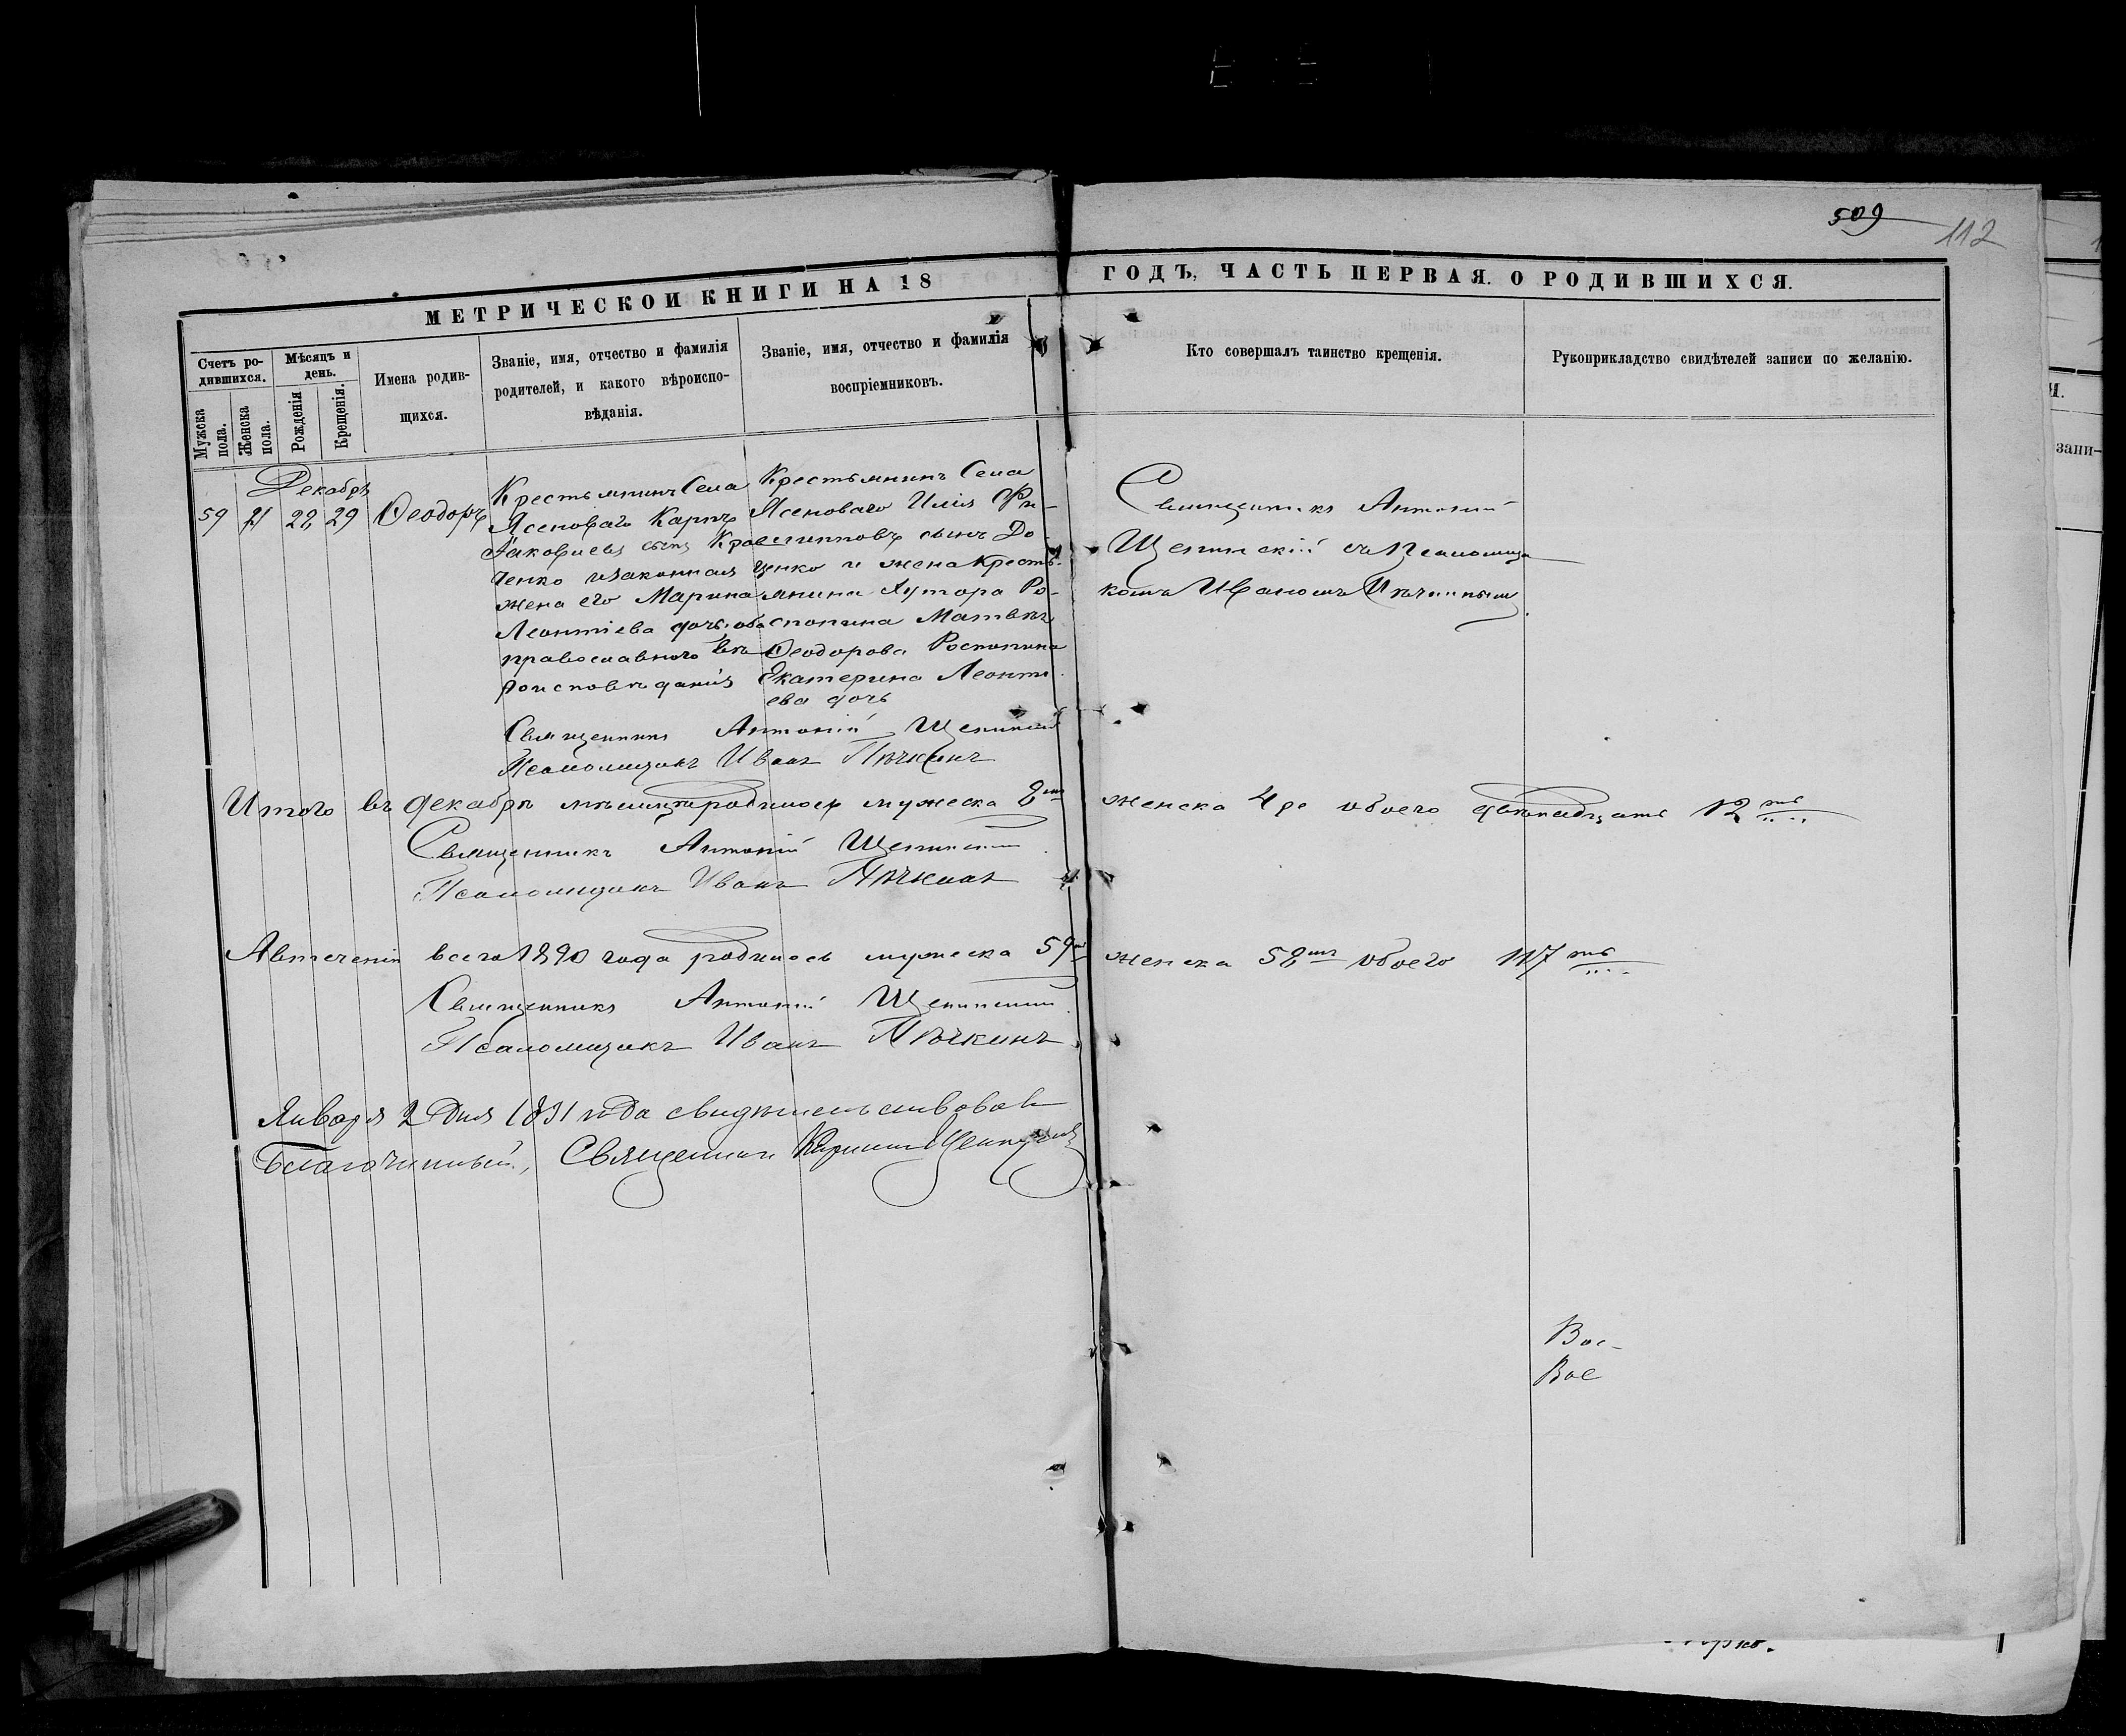 509
112
МЕТРИЧЕСКОЙ КНИГИ НА 18 ГОДЪ, ЧАСТЬ ПЕРВАЯ. О РОДИВШИХСЯ.
Счетъ ро-
дившихся.
Мужска
пола.
Женска
пола.
Мѣсяцъ и
день.
Рожденія
Крещенія.
Имена родив-
щихся.
Званіе, имя, отчество и фамилія
родителей, и какого вѣроиспо-
вѣданія.
Званіе, имя, отчество и фамилія
воспріемниковъ.
Кто совершалъ таинство крещенія.
Рукоприкладство свидѣтелей записи по желанію.
Декабрь
59
28 29
Ѳеодоръ
Крестьянинъ Села
Ясеноваго Карпъ
Іаковлевъ сынъ Кра
ченко и законная
жена его Марина
Леонтіева дочь, оба
православнаго вѣ
роисповѣданія
Крестьянинъ Села
Ясеноваго Илія Фи-
липповъ сынъ До
ценко и жена крестья-
нина Хутора Ро-
стопина Матвѣя
Ѳеодорова Ростопина
Екатерина Леонті
ева дочь
Священникъ Антоній
Щепинскій съ Псаломщи
комъ Иваномъ Пѣчкинымъ
Священникъ Антоній Щепинскій
Псаломщикъ Иванъ Пѣчкинъ
Итого въ Декабрѣ мѣсяцѣ родилось мужеска 8мь женска 4ре обоего двѣнадцать 12ть
Священникъ Антоній Щепинскій
Псаломщикъ Иванъ Пѣчкинъ
А втеченіи всего 1890 года родилось мужеска 59ть женска 58мь обоего 117ть
Священникъ Антоній Щепинскій
Псаломщикъ Иванъ Пѣчкинъ
Января 2 дня 1891 года свидѣтельствовалъ
Благочинный, Священникъ
Вос-
Вос
зани-